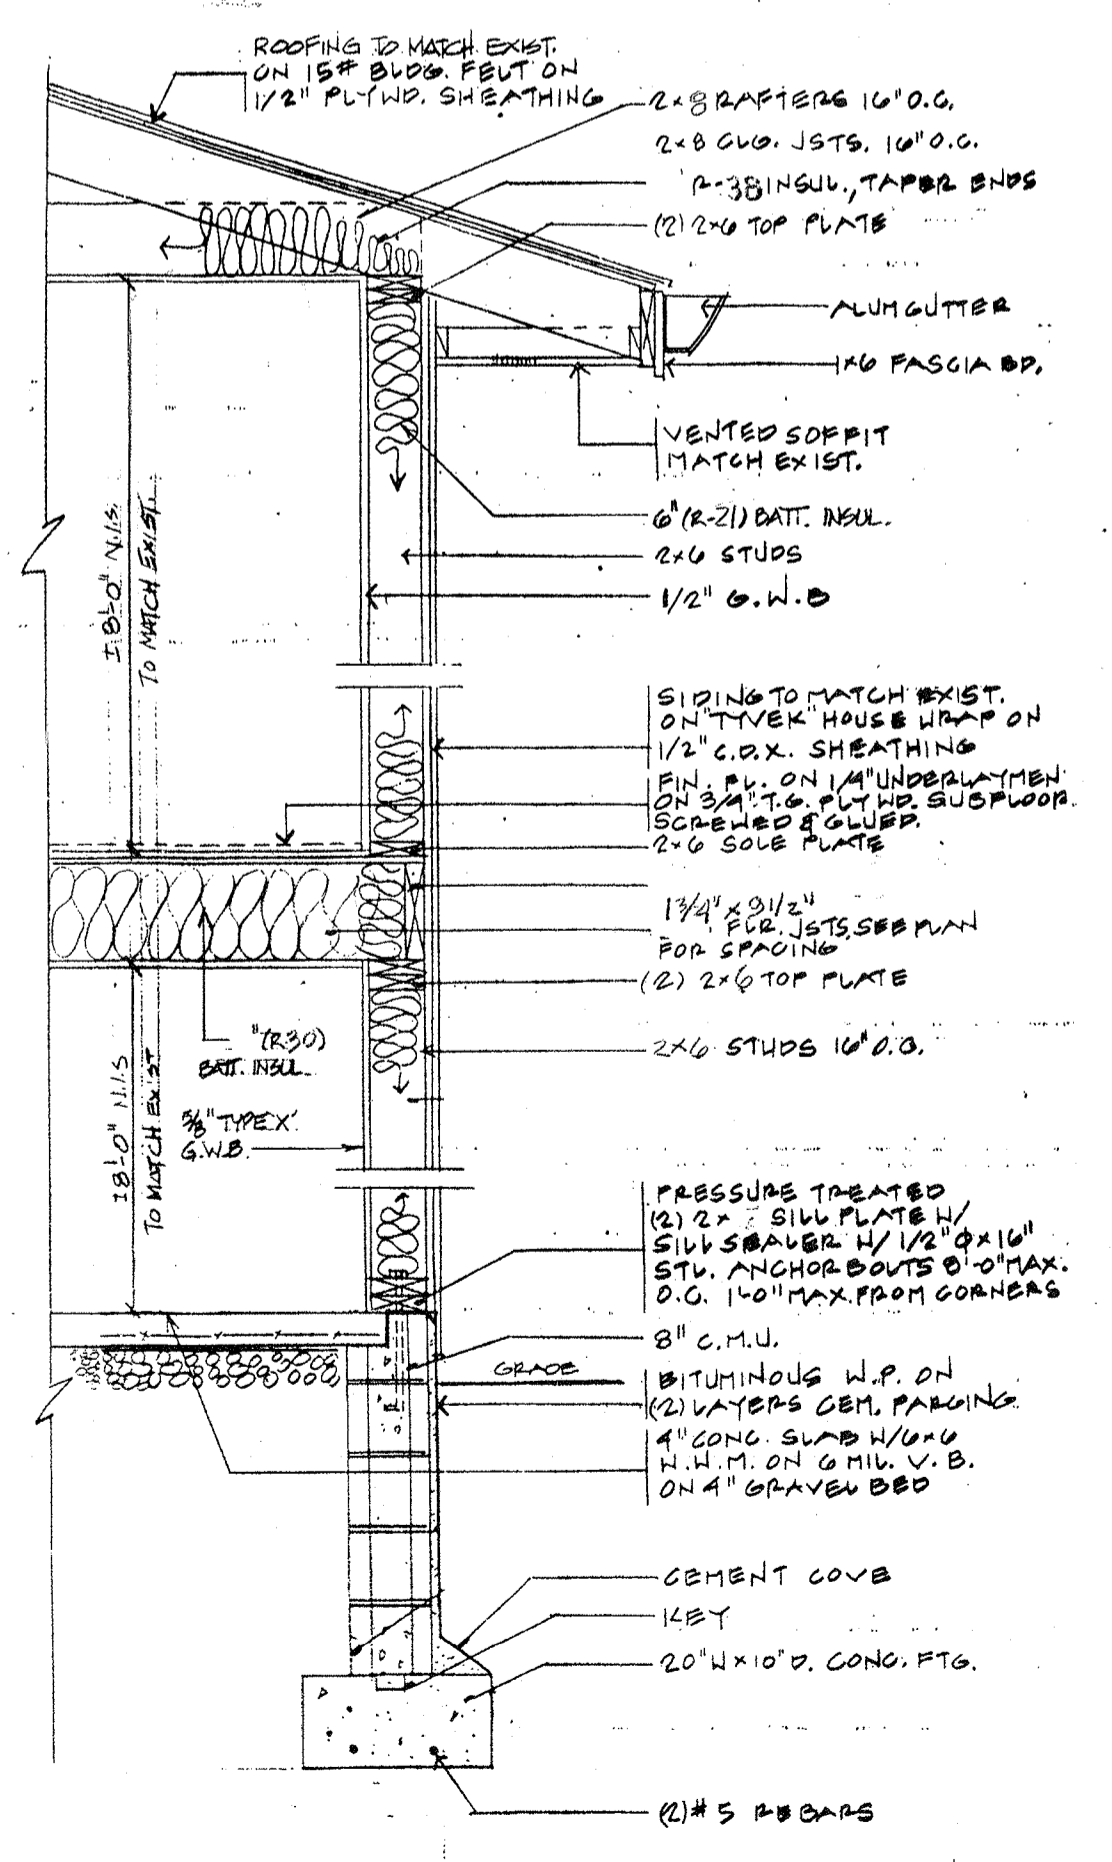 ROOFING TO MATCH EXIST.
ON 15# BLDG. FELT ON
1/2" PLYWD. SHEATHING
2x8 RAFTERS 16" O.C.
2x8 CLG. JSTS. 16" O.C.
R-38 INSUL., TAPER ENDS
(2) 2x6 TOP PLATE
ALUM GUTTER
1x6 FASCIA BD.
VENTED SOFFIT
MATCH EXIST.
6" (R-21) BATT. INSUL.
2x6 STUDS
1/2" G.W.B
8'-0" N.I.S.
TO MATCH EXIST.
SIDING TO MATCH EXIST.
ON "TYVEK" HOUSE WRAP ON
1/2" C.D.X. SHEATHING
FIN. FL. ON 1/4" UNDERLAYMEN
ON 3/4" T.G. PLYWD. SUBFLOOR.
SCREWED & GLUED.
2x6 SOLE PLATE
1 3/4" x 9 1/2"
FLR. JSTS. SEE PLAN
FOR SPACING
(2) 2x6 TOP PLATE
"(R30)
BATT. INSUL.
2x6 STUDS 16" O.C.
5/8" TYPE 'X'
G.W.B.
8'-0" N.I.S
TO MATCH EXIST
PRESSURE TREATED
(2) 2x SILL PLATE W/
SILL SEALER W/ 1/2" Φ x 16"
STL. ANCHOR BOLTS 8'-0" MAX.
O.C. 1'-0" MAX. FROM CORNERS
8" C.M.U.
GRADE
BITUMINOUS W.P. ON
(2) LAYERS CEM. PARGING
4" CONC. SLAB W/ 6x6
W.W.M. ON 6 MIL. V.B.
ON 4" GRAVEL BED
CEMENT COVE
KEY
20" W x 10" D. CONC. FTG.
(2) # 5 REBARS